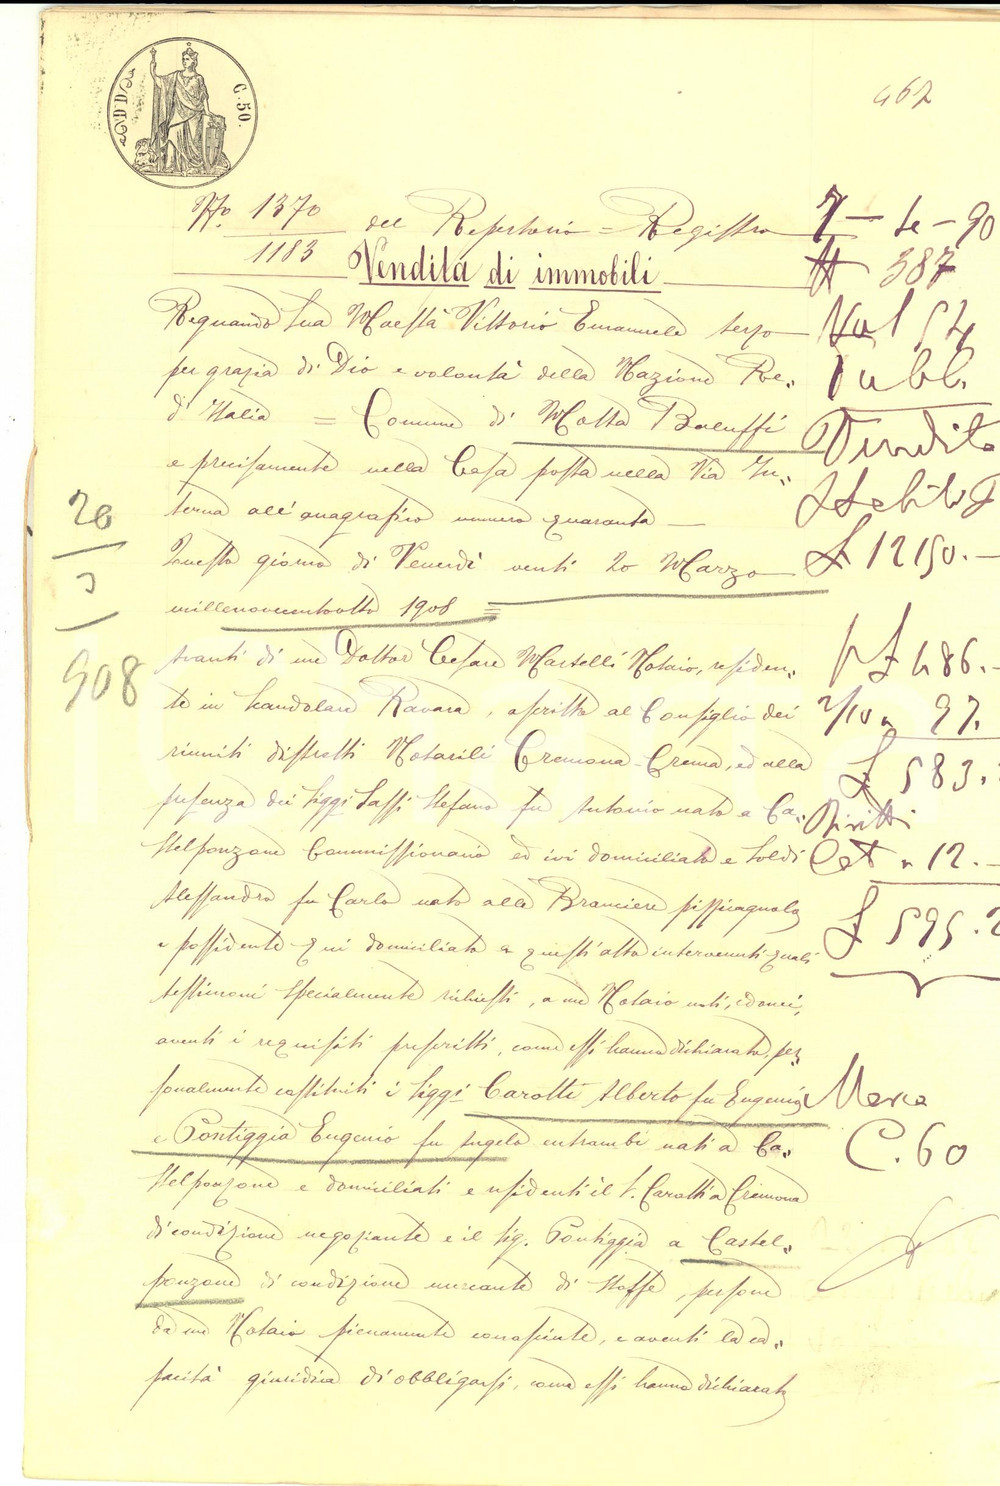 C. 50.
462
No. 1370 del Repertorio = Registro
1183 Vendita di immobili
Regnando Sua Maestà Vittorio Emanuele terzo
per grazia di Dio e volontà della Nazione Re-
d'Italia = Comune di Motta Baluffi
e precisamente nella Casa posta nella Via In-
terna all'anagrafico numero quaranta
Questo giorno di Venerdì venti 20 Marzo
millenovecentootto 1908 =
Avanti di me Dottor Cesare Martelli Notaio, residen-
te in Sandolare Ravara, ascritto al Consiglio dei
riuniti distretti Notarili Cremona-Crema, ed alla
presenza dei Siggi Sassi Stefano fu Antonio nato a Ca-
stelponzone Commissionario ed ivi domiciliato e Soldi
Alessandro fu Carlo nato alle Brancere
e possidente qui domiciliato a quest'atto intervenuti quali
testimoni specialmente richiesti, a me Notaio noti, idonei,
aventi i requisiti prescritti, come essi hanno dichiarato, per-
sonalmente costituiti i Siggi Carotti Alberto fu Eugenio
e Pontiggia Eugenio fu Angelo entrambi nati a Ca-
stelponzone e domiciliati e residenti il S. Carotti a Cremona
di condizione negoziante e il Sig. Pontiggia a Castel-
ponzone di condizione mercante di stoffe, persone
da me Notaio pienamente conosciute, e aventi la ca-
pacità giuridica di obbligarsi, come essi hanno dichiarato
20
3
908
7 - 4e - 90
N 387
Vol 54
Pubb.
Vendita
Stabili
£ 12150.-
£ 486.-
2/10 " 97.
£ 583.
Diritti
Cat " 12.-
£ 595.2
Marca
C. 60